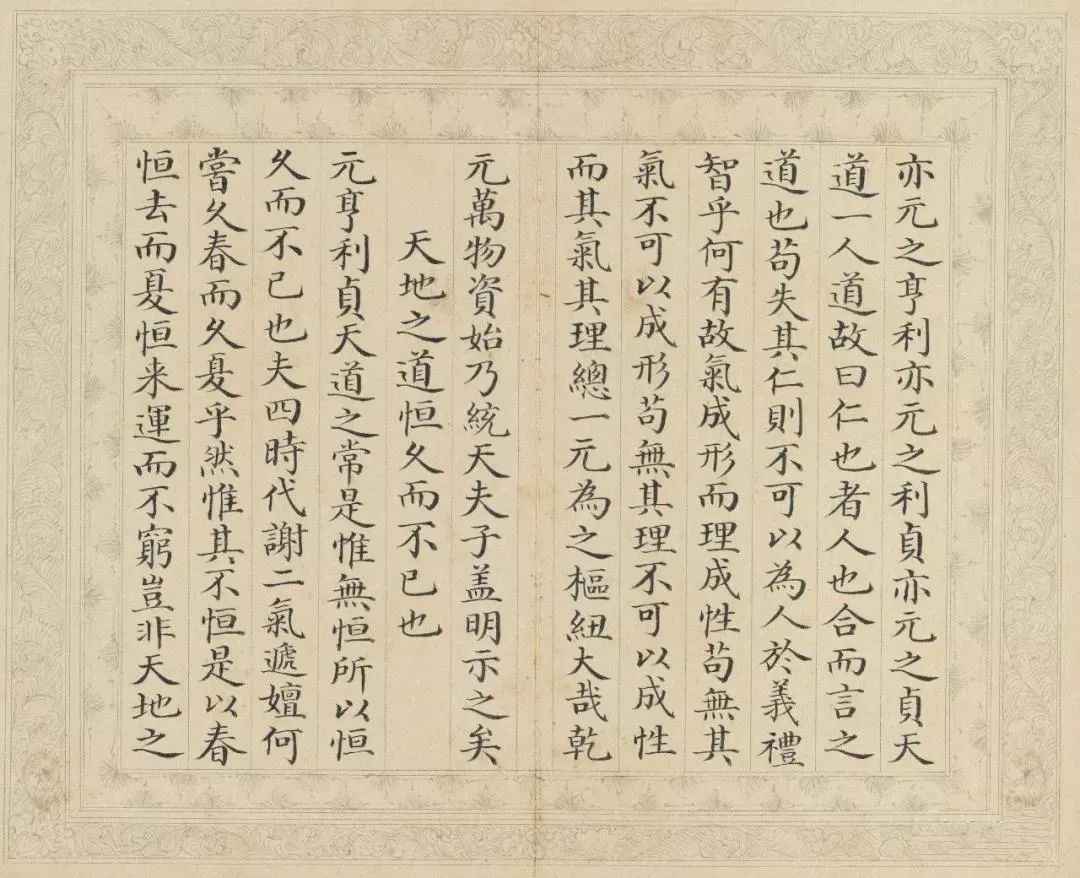 亦元之亨利亦元之利貞亦元之貞天
道一人道故曰仁也者人也合而言之
道也苟失其仁則不可以為人於義禮
智乎何有故氣成形而理成性苟無其
氣不可以成形苟無其理不可以成性
而其氣其理總一元為之樞紐大哉乾
元萬物資始乃統天夫子盖明示之矣
天地之道恒久而不已也
元亨利貞天道之常是惟無恒所以恒
久而不已也夫四時代謝二氣遞嬗何
嘗久春而久夏乎然惟其不恒是以春
恒去而夏恒来運而不窮豈非天地之